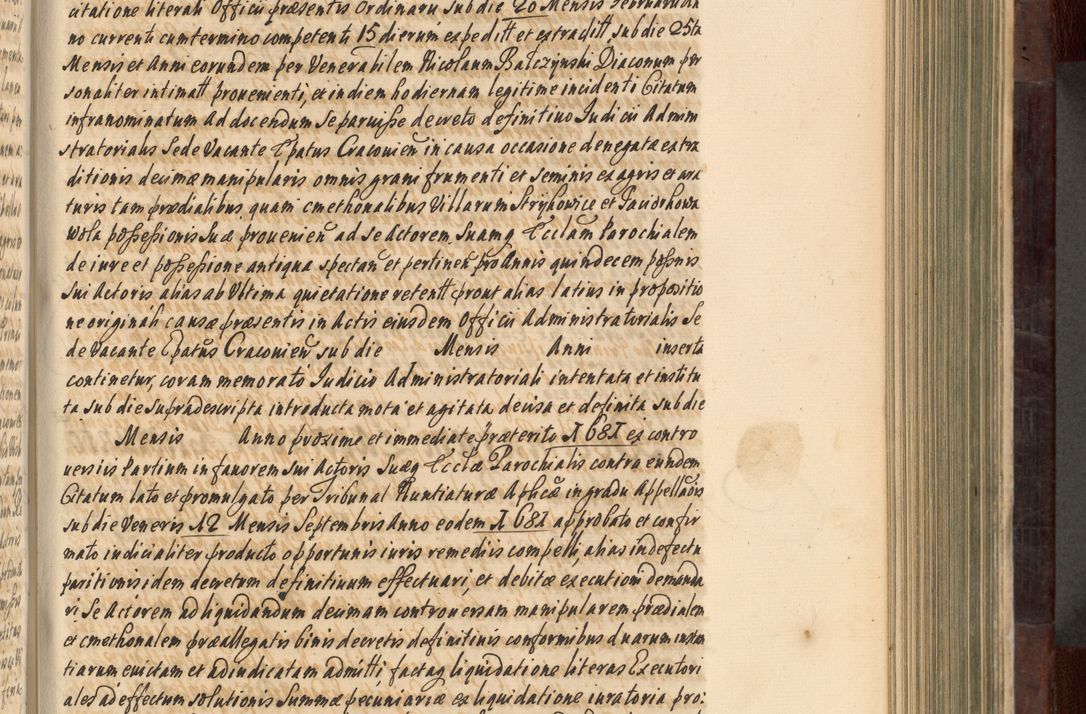 citatione literali Officii præsentis Ordinarii sub die 20 Mensis Februarii An
no currenti cum termino competenti 15 dierum expeditt et extraditt sub die 25ta
Mensis et Anni eorundem per Venerabilem Nicolaum Balczynski Diaconum per
sonaliter intimatt provenienti, et in diem hodiernam legitime incidenti Citatum
infranominatum Ad docendum Se paruisse decreto definitivo Iudicii Admini
stratorialis Sede Vacante Epatus Cracovien̄ in causa occasione denegatæ extra
ditionis decimæ manipularis omnis grani frumenti et seminis ex agris et ara
turis tam prædialibus quam cmethonalibus Villarum Strykowice et Jacidrkowa
Wola possessionis Suæ provenien̄ ad se Actorem Suamq Ecclam Parochialem
de iure et possessione antiqua spectan̄ et pertinen̄ pro Annis quindecem possnis
Sui Actoris alias ab Ultima quietatione retentt prout alias latius in propositio
ne originali causæ præsentis in Actis eiusdem Officii Administratorialis Se
de Vacante Epatus Cracovien̄ sub die Mensis Anni inserta
continetur, coram memorato Iudicio Administratoriali intentata et institu
ta sub die supradescripta introducta mota et agitata decisa et definita sub die
Mensis Anno proxime et immediate præterito 1681 ex contro
versiis Partium in favorem sui Actoris Suæq Ecclæ Parochialis contra eundem
Citatum lato et promulgato per Tribunal Nuntiaturæ Aplicæ in gradu Appellaōis
sub die Veneris 12 Mensis Septembris Anno eodem 1681 approbato et confir
mato iudicialiter producto opportunis iuris remediis compelli, alias in defectu
paritionis idem decretum definitivum effectuari, et debitæ executioni demanda
ri, Se Actorem ad liquidandum decimam controversam manipularem prædialem
et cmethonalem præallegatis binis decretis definitivis conformibus duarum instan
tiarum evictam et adiudicatam admitti, factaq liquidatione literas Executori
ales ad effectum solutionis Summæ pecuniariæ ex liquidatione iuratoria pro: